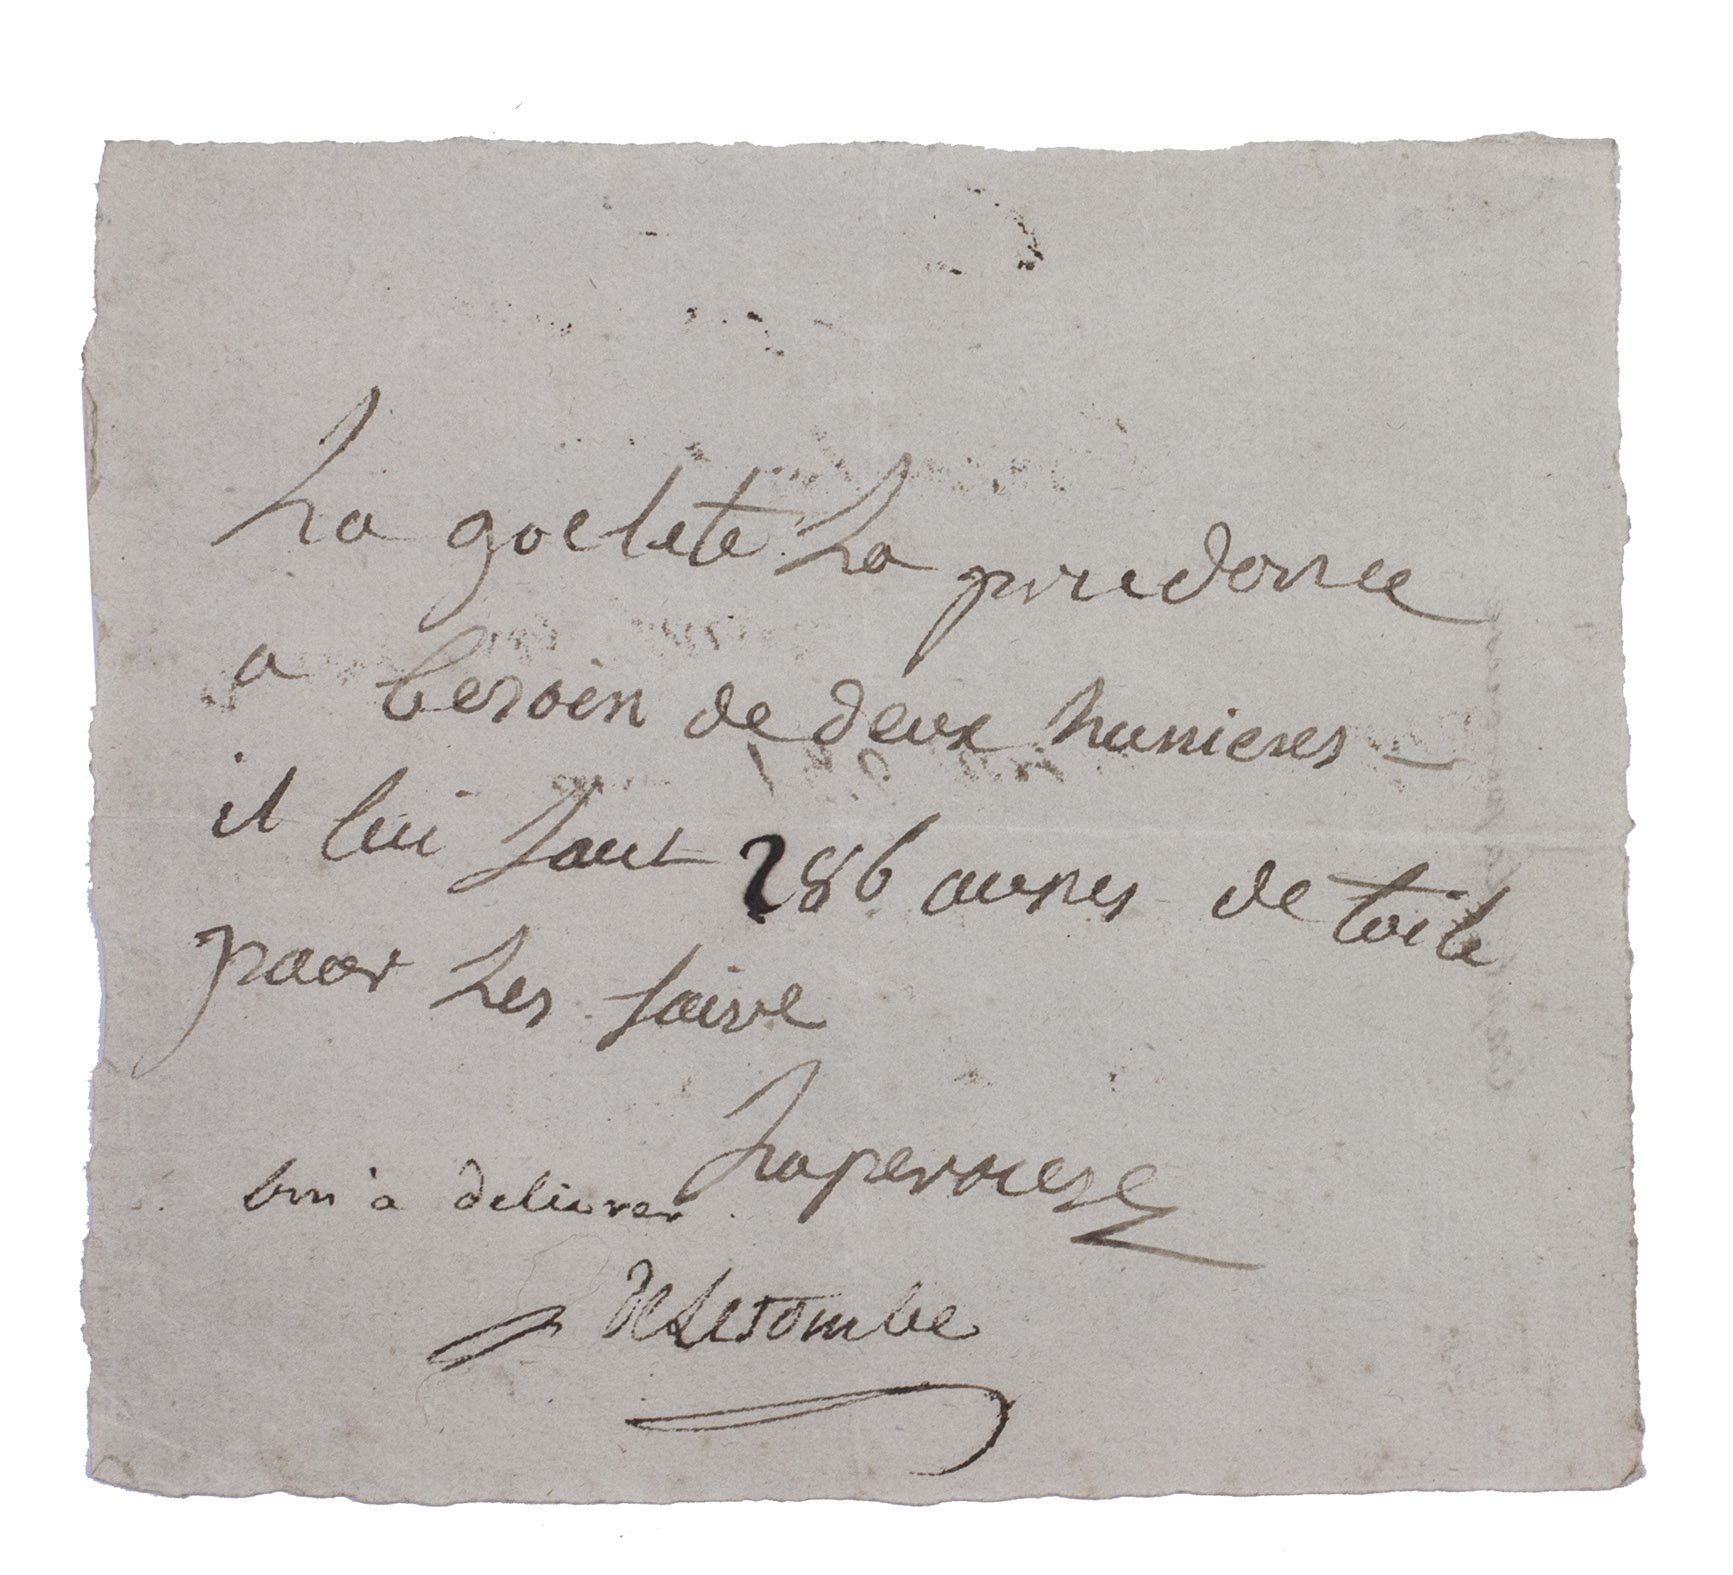 La goelete La prudence
a besoin de deux hunieres
il lui faut 286 aunes de toile
pour Les faire
Laperouse
bon à delivrer